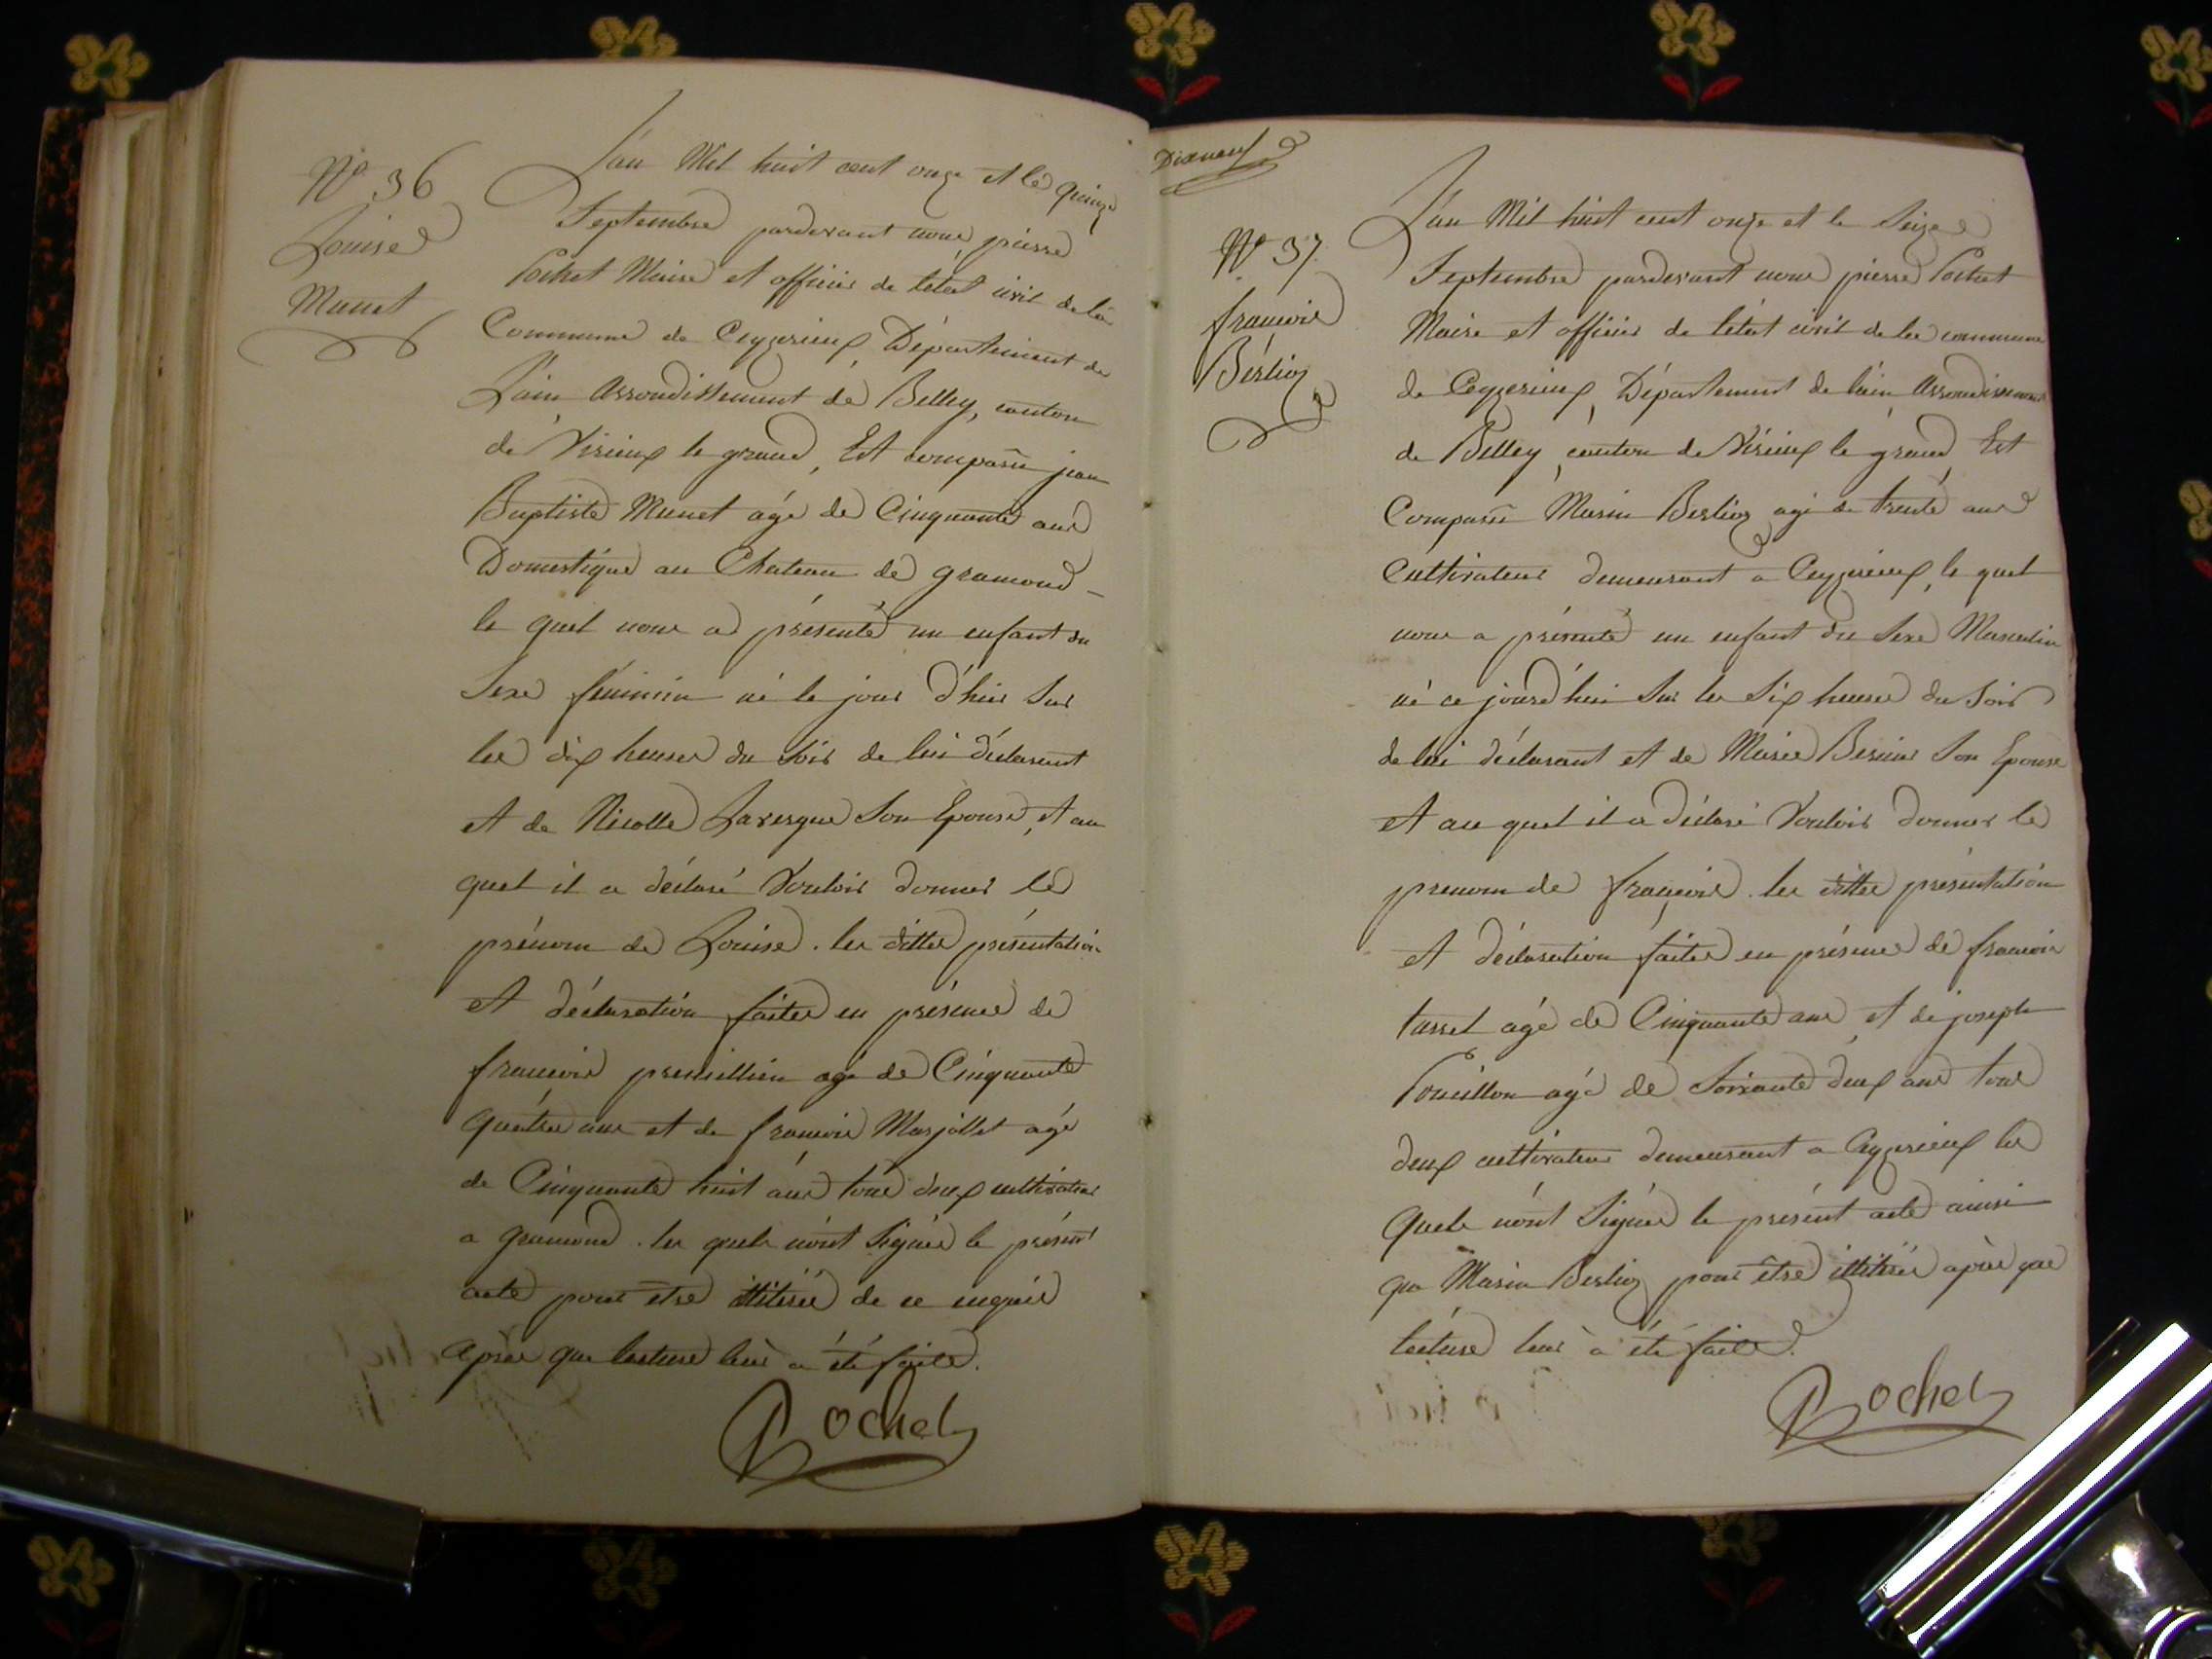 Nº 36
Louise
Munet
L'an Mil huit cent onze et le quinze
Septembre pardevant nous pierre
Pochet Maire et officier de l'état civil de la
Commune de Ceyzerieux, Département de
L'ain, Arrondissement de Belley, canton
de Virieux le grand, Est comparu jean
Baptiste Munet agé de Cinquante ans
Domestique au Chateau de gramond
le quel nous a présenté un enfant du
Sexe féminin né le jour d'hier Sur
les dix heures du soir de lui déclarant
et de Nicolle Lavergne Son Epouse, et au
quel il a déclaré Vouloir donner le
prénom de Louise. les dittes présentation
et déclaration faites en présence de
francois premillieu agé de Cinquante
quatre ans et de francois Marjollet agé
de Cinquante huit ans tous deux cultivateurs
a gramond. les quels n'ont Signés le présent
acte pour etre illitérés de ce enquis
après que lecture leur a été faite.
Pochet
Dixneuf
Nº 37.
francois
Berlioz
L'an Mil huit cent onze et le Seize
Septembre pardevant nous pierre Pochet
Maire et officier de l'état civil de la commune
de Ceyzerieux, Département de l'ain, Arrondissement
de Belley, canton de Virieux le grand, Est
Comparu Marin Berlioz agé de trente ans
Cultivateur demeurant a Ceyzerieux, le quel
nous a présenté un enfant du Sexe Masculin
né ce jourd'hui Sur les Six heures du Soir
de lui déclarant et de Marie Son Epouse
et au quel il a déclaré Vouloir donner le
prenom de françois. les dittes présentation
et déclaration faites en présence de francois
agé de Cinquante ans, et de joseph
Pouillon agé de Soixante deux ans tous
deux cultivateurs demeurant a Ceyzerieux les
Quels n'ont Signés le présent acte ainsi
que Marin Berlioz pour être illitérés après que
lecture leur a été faite.
Pochet